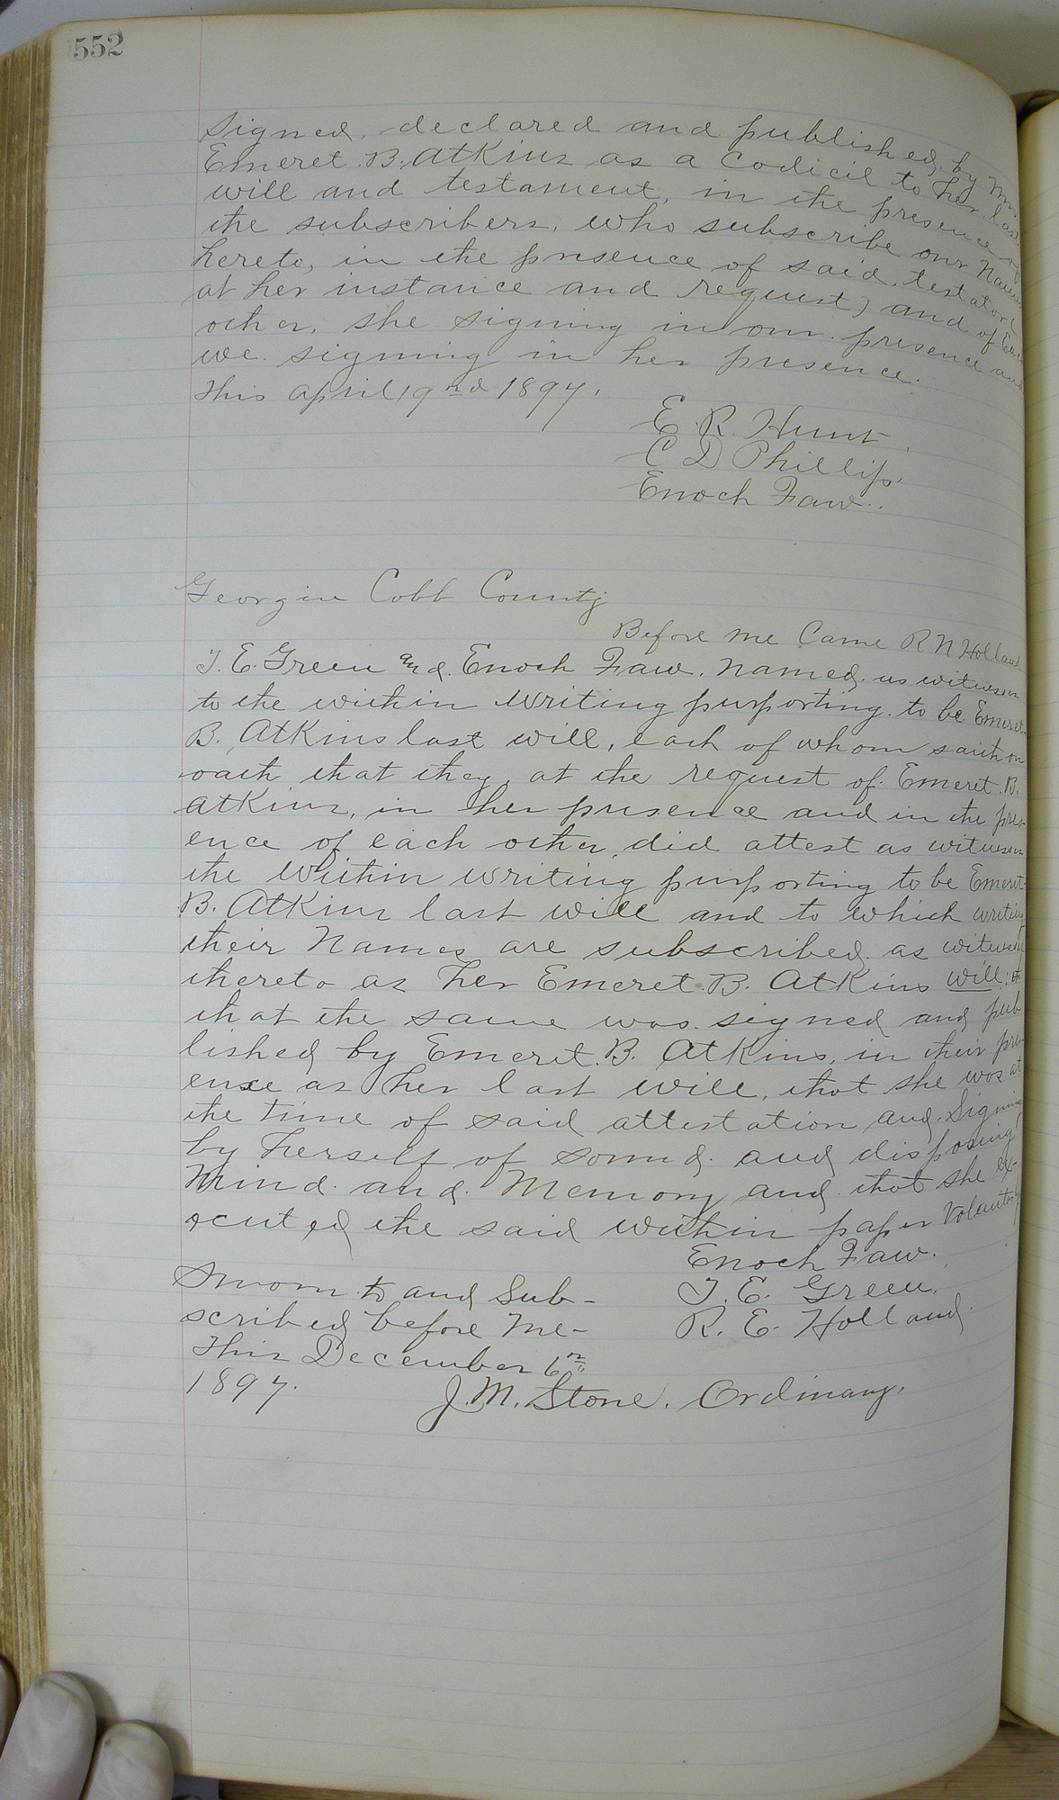 552
Signed, declared and published, by Mrs.
Emeret. B. Atkins as a Codicil to her last
will and testament, in the presence of
the subscribers, who subscribe our Names
hereto, in the presence of said, testatori
at her instance and request, and of Each
other, she signing in our presence and
we signing in her presence.
This april 19nd 1897.
E. R. Hunt
C D Phillips.
Enoch Faw..
Georgia Cobb County
Before me Came R N Holland
T. E. Green and. Enoch Faw. Named. as witnesses
to the within writing purporting to be Emeret
B. Atkins last will, each of whom saith on
oath that they, at the request of Emeret. B.
Atkins, in her presence and in the pres-
ence of each other, did attest as witnesses
the Within writing purporting to be Emeret
B. Atkins last will and to which writing
their Names are subscribed. as witnesses
thereto as her Emeret. B. Atkins will;
that the same was signed and pub
lished by Emeret. B. Atkins, in their pres
ence as her last will, that she was at
the time of said attestation and Signing
by herself of sound. and disposing
Mind. and. Memory and that she ex-
ecuted the said within paper Volantarily
Enoch Faw.
Sworn to and Sub-
T. E. Green.
scribed before Me-
R. E. Holland.
This December 6th
1897.
J. M. Stone. Ordinary.